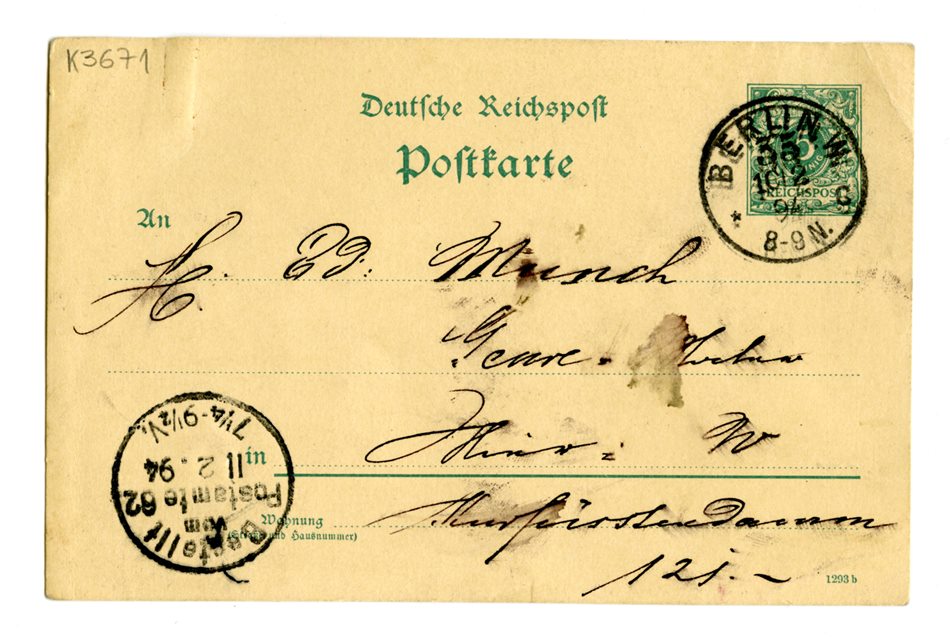 K3671
Deutsche Reichspost
Postkarte
BERLIN W.
35
10/2
94
8-9 N.
* S
REICHSPOST
An
H. Ed: Munch
in
W
Wohnung
(Straße und Hausnummer)
Kurfürstendamm
121.-
Bestellt
vom
Postamte 62
11 2.94
7¼-9½V.
1293 b